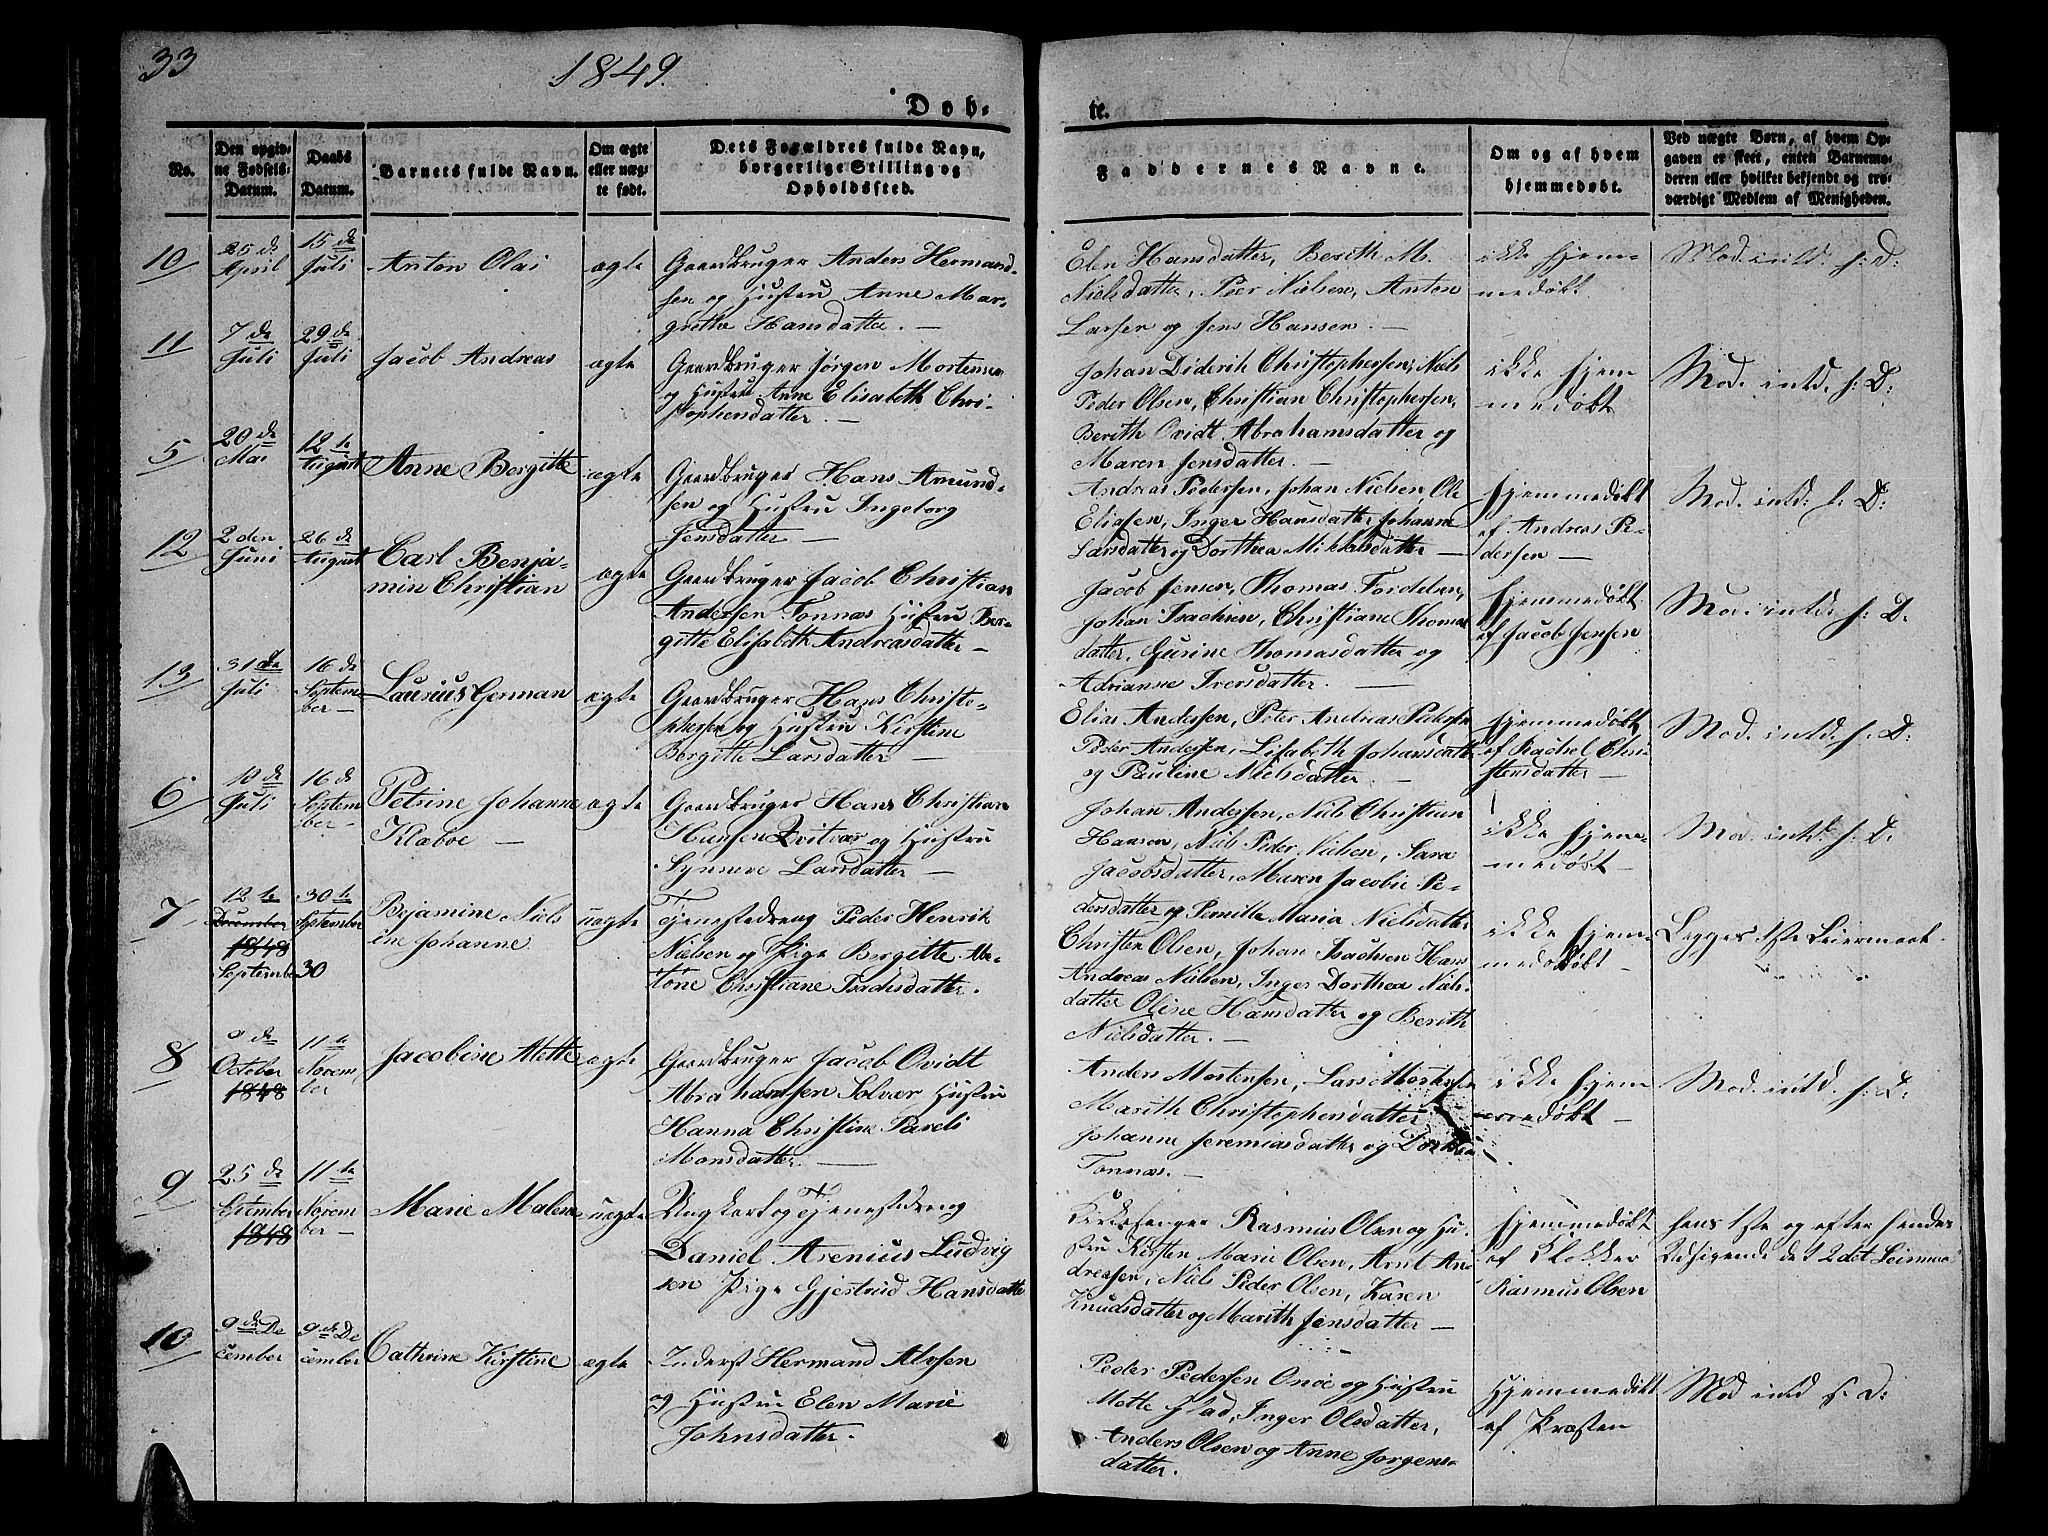 33
1849.
Døb-
te.
No.
Den opgiv-
ne Fødsels-
Datum.
Daabs
Datum.
Barnets fulde Navn.
Om ægte
eller uæg-
te født.
Dets Forældres fulde Navn,
borgerlige Stilling og
Opholdssted.
Faddernes Navne.
Om og af hvem
hjemmedøbt.
Ved uægte Børn, af hvem Op-
gaven er skeet, enten Barnemo-
deren eller hvilket bekjendt og tro-
værdigt Medlem af Menigheden.
10
25 de
April
15 de
Juli
Anton Olai
ægte
Gaardbruger Anders Hermand-
sen og Hustru Anne Mar-
grethe Hansdatter. —
Elen Hansdatter, Berith M.
Nielsdatter, Peer Nielsen, Anton
Larsen og Jens Hansen. —
ikke hjem-
medøbt
Mod. intd. f: D:
11
7 de
Juli
29 de
Juli
Jacob Andreas
ægte
Gaardbruger Jørgen Mortensen
og Hustru Anne Elisabeth Chri-
stophersdatter. —
Johan Diderik Christophersen, Niels
Peder Olsen, Christian Christophersen,
Berith Ovidt Abrahamsdatter og
Maren Jensdatter. —
ikke hjem
medøbt
Mod. intd. f: D:
5
20 de
Mai
12 te
August
Anne Bergitte
ægte
Gaardbruger Hans Amund-
sen og Hustru Ingeborg
Jensdatter —
Andreas Pedersen, Johan Nielsen, Ole
Eliasen, Inger Hansdatter, Johanne
Larsdatter og Dorthea Nielsdatter —
Hjemmedøbt
af Andreas Pe-
dersen —
Mod. intd: f. D:
12
2 den
Juni
26 de
August
Carl Benja-
min Christian
ægte
Gaardbruger Jacob Christian
Andersen Tonnæs Hustru Ber-
gitte Elisabeth Andreasdatter —
Jacob Jensen, Thomas Fordelsen,
Johan Isachsen, Christiane Thomas
datter, Gurine Thomasdatter og
Adrianne Iversdatter. —
Hjemmedøbt
af Jacob Jensen
Mod. intd. f: D.
13
31 de
Juli
16 de
Septem-
ber —
Laurius German
ægte
Gaardbruger Hans Christo-
phersen og Hustru Kirstine
Bergitte Larsdatter —
Elias Andersen, Peter Andreas Pedersen
Peder Andersen, Lisabeth Johansdatter
og Pauline Nielsdatter —
Hjemmedøbt
af Rachel Chri-
stensdatter —
Mod. intd. f: D:
6
18 de
Juli
16 de
Septem
ber —
Petrine Johanne
Klæboe —
ægte
Gaardbruger Hans Christian
Hansen Qvitvær og Hustru
Synneve Larsdatter —
Johan Andersen, Niels Christian
Hansen, Niels Peder Nielsen, Sara
Jacobsdatter, Maren Jacobie Pe-
dersdatter og Pernille Maria Nielsdatter
ikke hjem-
medøbt —
Mod. intd. f: D:
7
12 te
December
1848
September 30
30 te
September
Bejamine Niels
ine Johanne
uægte
Tjenestedreng Peder Henrik
Nielsen og Pige Bergitte An-
tone Christiane Isachsdatter.
Christen Olsen, Johan Isachsen Hans
Andreas Nielsen, Inger Dorthea Niels-
datter Oline Hansdatter og Berith
Nielsdatter. —
ikke hjem-
medøbt —
Begges 1ste Leiermaal.
8
de
October
1848
11 te
Novem
ber
Jacobine Alette
ægte
Gaardbruger Jacob Ovidt
Abrahamsen Solvær Hustru
Hanna Christine Pareli
Monsdatter —
Anders Mortensen, Lars Mortensen
Marith Christophersdatter
Johanne Jeremiasdatter og Dorthea
Tonnæs. —
ikke hjem
medøbt —
Mod. intd. f: D:
9
25 de
1848
11 te
Novem
ber —
Marie Malene
uægte
Ungkarl og Tjenestedreng
Daniel Arenius Ludvig
sen Pige Gjertrud Hansdatter
Kirkesanger Rasmus Olsen og Hu-
stru Kirsten Marie Olsen, Arnt An
dreasen, Niels Peder Olsen, Karen
Knudsdatter og Marith Jensdatter —
Hjemmedøbt
af Klokker
Rasmus Olsen
hans 1ste og efter hendes
Udsigende det 2det Leierma
10
9 de De
cember
9 de De
cember
Cathrine Kirstine
ægte
Inderst Hermand Alvsen
og Hustru Elen Marie
Johnsdatter. —
Peder Pedersen Onøe og Hustru
Mette Flad, Inger Olsdatter,
Anders Olsen og Anne Jørgens-
datter.
Hjemmedøbt
af Præsten
Mod intd f. D: